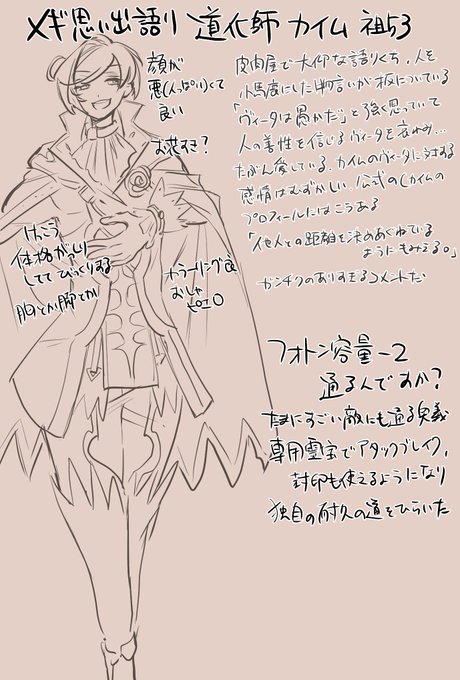 メギ思い出語り 道化師 カイム 祖53
皮肉屋で大仰な語りくち、人を
小馬鹿にした物言いが板についている
「ヴィータは愚かだ」と強く思っていて
人の善性を信じるヴィータを哀れみ…
たぶん愛している。カイムのヴィータに対する
感情はむずかしい。公式のカイムの
プロフィールにはこうある
「他人との距離を決めあぐねている
ようにもみえる。」
ガンチクのありすぎるコメントだ
顔が
悪(人っぽい)くて
良い
お花すき?
けっこう
体格がっしり
しててびっくりする
胸とか脚とか
カラーリング良
おしゃ
ピエロ
フォトン容量-2
通るんですか?
たまにすごい敵にも通る奥義
専用霊宝でアタックブレイク,
封印も使えるようになり
独自の耐久の道をひらいた